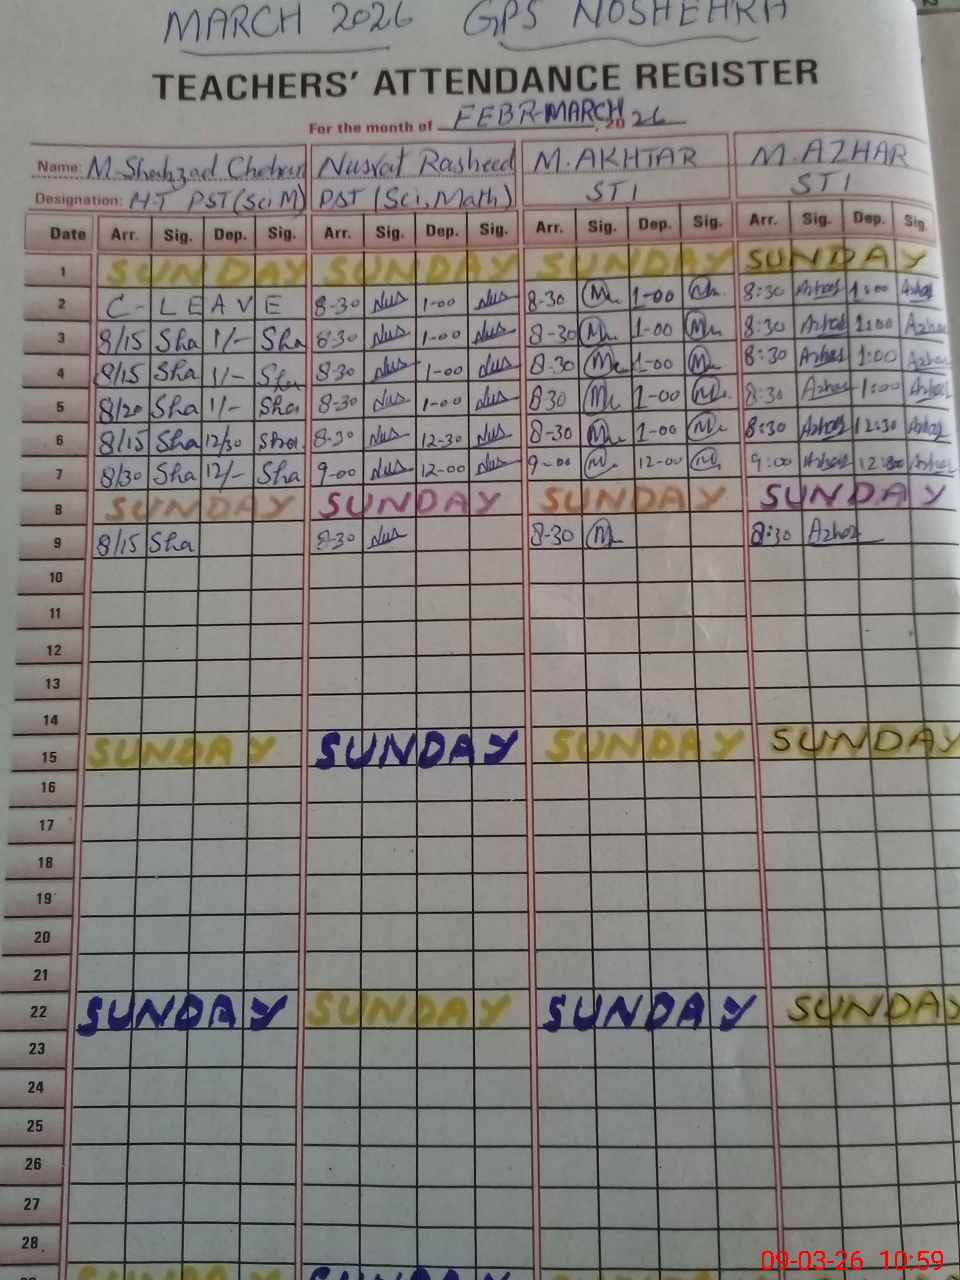 MARCH 2026 GPS NOSHEHRA
TEACHERS' ATTENDANCE REGISTER
For the month of FEBR-MARCH, 2026
Name: M. Shahzad M. AKHTAR M. AZHAR
Nusrat Rasheed
Designation: H.T PST (Sci M) PST (Sci, Math) STI STI
Date Arr. Sig. Dep. Sig. Arr. Sig. Dep. Sig. Arr. Sig. Dep. Sig. Arr. Sig. Dep. Sig.
1 SUNDAY SUNDAY SUNDAY SUNDAY
2 C-LEAVE 8-30 Nus 1-00 Nus 8-30 M 1-00 M 8:30 Azhar 1:00 Azhar
3 8/15 Sha 1/- Sha 8-30 Nus 1-00 Nus 8-30 M 1-00 M 8:30 Azhar 1:00 Azhar
4 8/15 Sha 1/- Sha 8-30 Nus 1-00 Nus 8-30 M 1-00 M 8:30 Azhar 1:00 Azhar
5 8/20 Sha 1/- Sha 8-30 Nus 1-00 Nus 8-30 M 1-00 M 8:30 Azhar 1:00 Azhar
6 8/15 Sha 12/30 Sha 8-30 Nus 12-30 Nus 8-30 M 1-00 M 8:30 Azhar 12:30 Azhar
7 8/30 Sha 12/- Sha 9-00 Nus 12-00 Nus 9-00 M 12-00 M 9:00 Azhar 12:00 Azhar
8 SUNDAY SUNDAY SUNDAY SUNDAY
9 8/15 Sha 8-30 Nus 8-30 M 8:30 Azhar
10
11
12
13
14
15 SUNDAY SUNDAY SUNDAY SUNDAY
16
17
18
19
20
21
22 SUNDAY SUNDAY SUNDAY SUNDAY
23
24
25
26
27
28
09-03-26 10:59